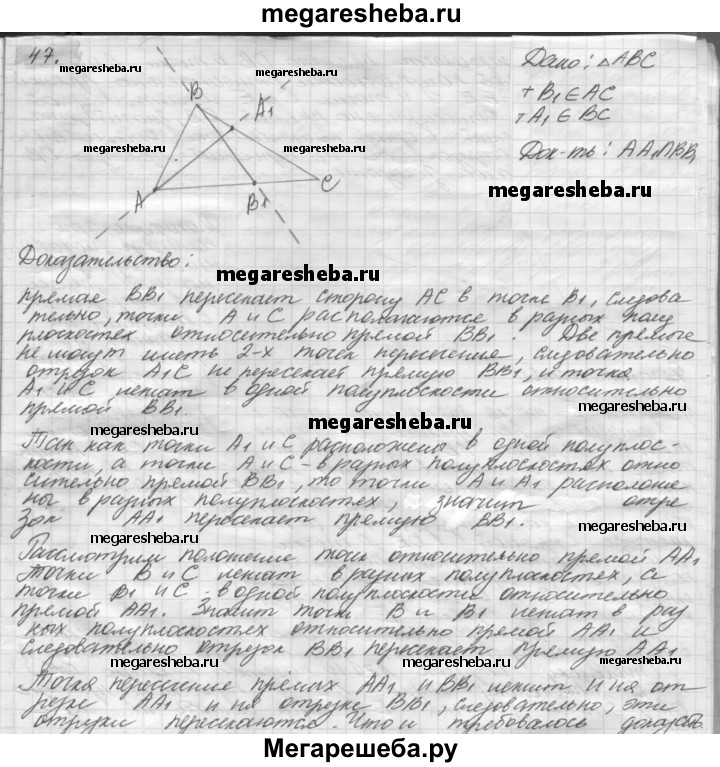 megaresheba.ru
47.
megaresheba.ru
Дано: △ABC
megaresheba.ru
B
A1
т B1 ∈ AC
т A1 ∈ BC
megaresheba.ru
megaresheba.ru
Док-ть: AA1∩BB1
C
megaresheba.ru
A
B1
Доказательство:
megaresheba.ru
прямая BB1 пересекает сторону AC в точке B1, следова
тельно, точки A и C располагаются в разных полу
плоскостях относительно прямой BB1. Две прямые
не могут иметь 2-х точек пересечение, следовательно
отрезок A1C не пересекает прямую BB1, и точка
A1 и C лежат в одной полуплоскости относительно
прямой BB1.
megaresheba.ru
megaresheba.ru
megaresheba.ru
Так как точки A1 и C расположены в одной полуплос-
кости, а точки A и C - в разных полуплоскостях отно
сительно прямой BB1, то точки A и A1 расположе
ны в разных полуплоскостях, значит отре
зок AA1 пересекает прямую BB1.
megaresheba.ru
megaresheba.ru
Рассмотрим положение точек относительно прямой AA1
Точки B и C лежат в разных полуплоскостях, а
точки B1 и C - в одной полуплоскости относительно
прямой AA1. Значит точки B и B1 лежат в раз
ных полуплоскостях относительно прямой AA1 и
следовательно отрезок BB1 пересекает прямую AA1
megaresheba.ru
megaresheba.ru
megaresheba.ru
Точка пересечение прямых AA1 и BB1 лежит и на от
резке AA1 и на отрезке BB1, следовательно, эти
отрезки пересекаются. Что и требовалось доказать.
megaresheba.ru
megaresheba.ru
Мегарешеба.ру